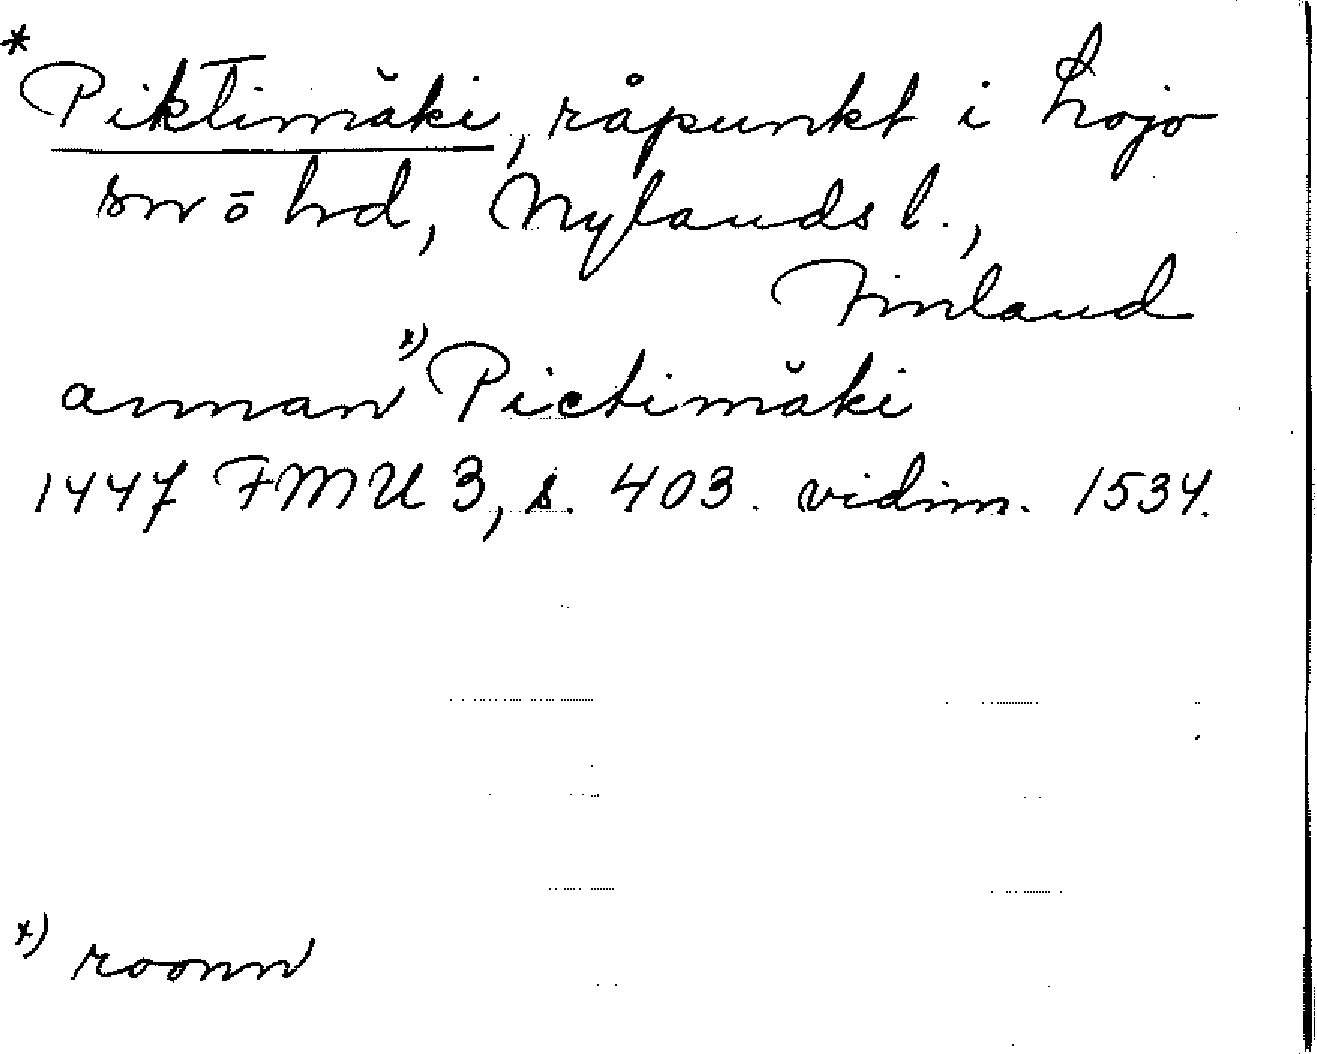 * Piktimäki, råpunkt i Lojo
sn o hd, Nylands l.,
Finland
annan x) Pictimäki
1447 FMU 3, s. 403. vidim. 1534.
x) roonn